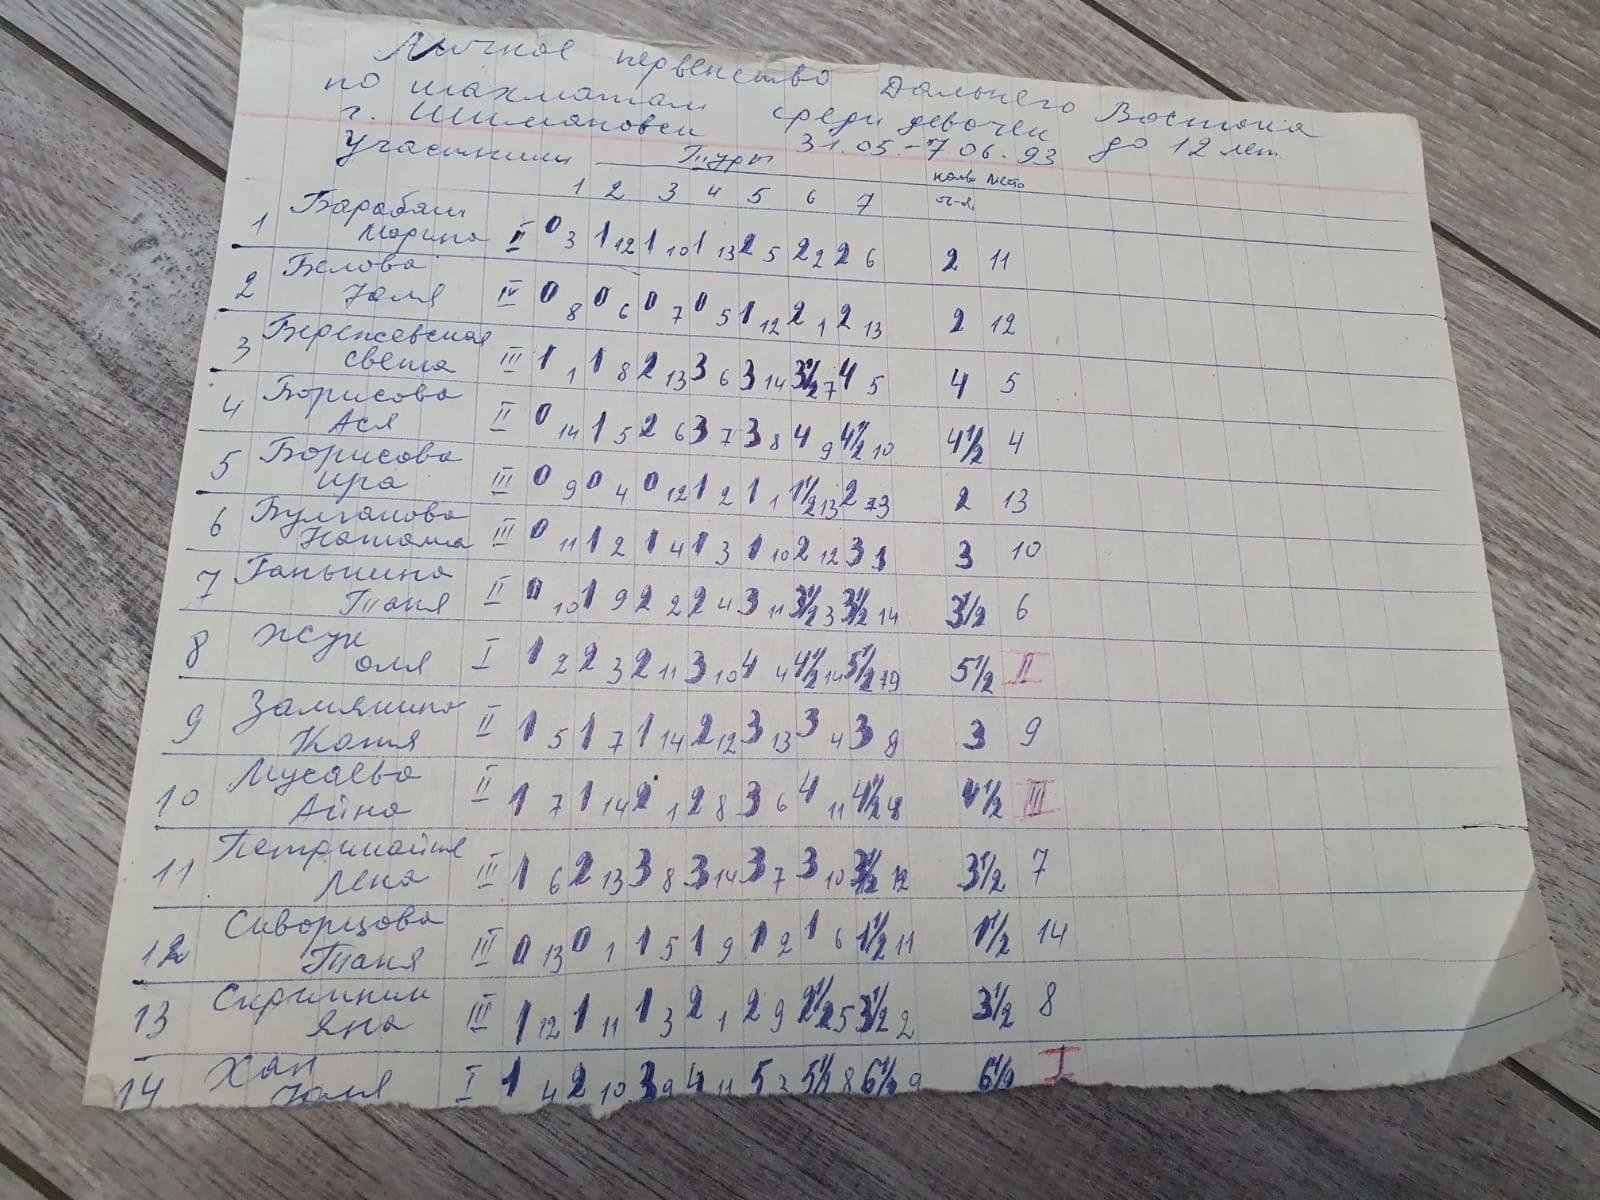 Личное первенство Дальнего Востока
по шахматам среди девочек до 12 лет
г. Шимановск 31.05.-7.06.93
Участники Туры
1 2 3 4 5 6 7 колв Место
1 Барабаш
Марина II 0 3 1 12 1 10 1 13 2 5 2 2 2 6 2 11
2 Белова
Юля IV 0 8 0 6 0 7 0 5 1 12 2 1 2 13 2 12
3 Бережевская
Света III 1 1 1 8 2 13 3 6 3 14 3½ 7 4 5 4 5
4 Борисова
Ася II 0 14 1 5 2 6 3 7 3 8 4 9 4½ 10 4½ 4
5 Борисова
Ира III 0 9 0 4 0 12 1 2 1 1 1½ 13 2 3 2 13
6 Булгакова
Наташа III 0 11 1 2 1 4 1 3 1 10 2 12 3 1 3 10
7 Ганькина
Таня II 0 10 1 9 2 2 2 4 3 11 3½ 3 3½ 14 3½ 6
8 Жук
Оля I 1 2 2 3 2 11 3 10 4 4 4½ 14 5½ 9 5½ II
9 Замянина
Катя II 1 5 1 7 1 14 2 12 3 13 3 4 3 8 3 9
10 Мусаева
Айна II 1 7 1 14 2 1 2 8 3 6 4 11 4½ 4 4½ III
11 Петримайте
Лена III 1 6 2 13 3 8 3 14 3 7 3 10 3½ 12 3½ 7
12 Скворцова
Таня III 0 13 0 1 1 5 1 9 1 2 1 6 1½ 11 1½ 14
13 Скрипник
Яна III 1 12 1 11 1 3 2 1 2 9 2½ 5 3½ 2 3½ 8
14 Хан
Юля I 1 4 2 10 3 9 4 11 5 3 5½ 8 6½ 9 6½ I